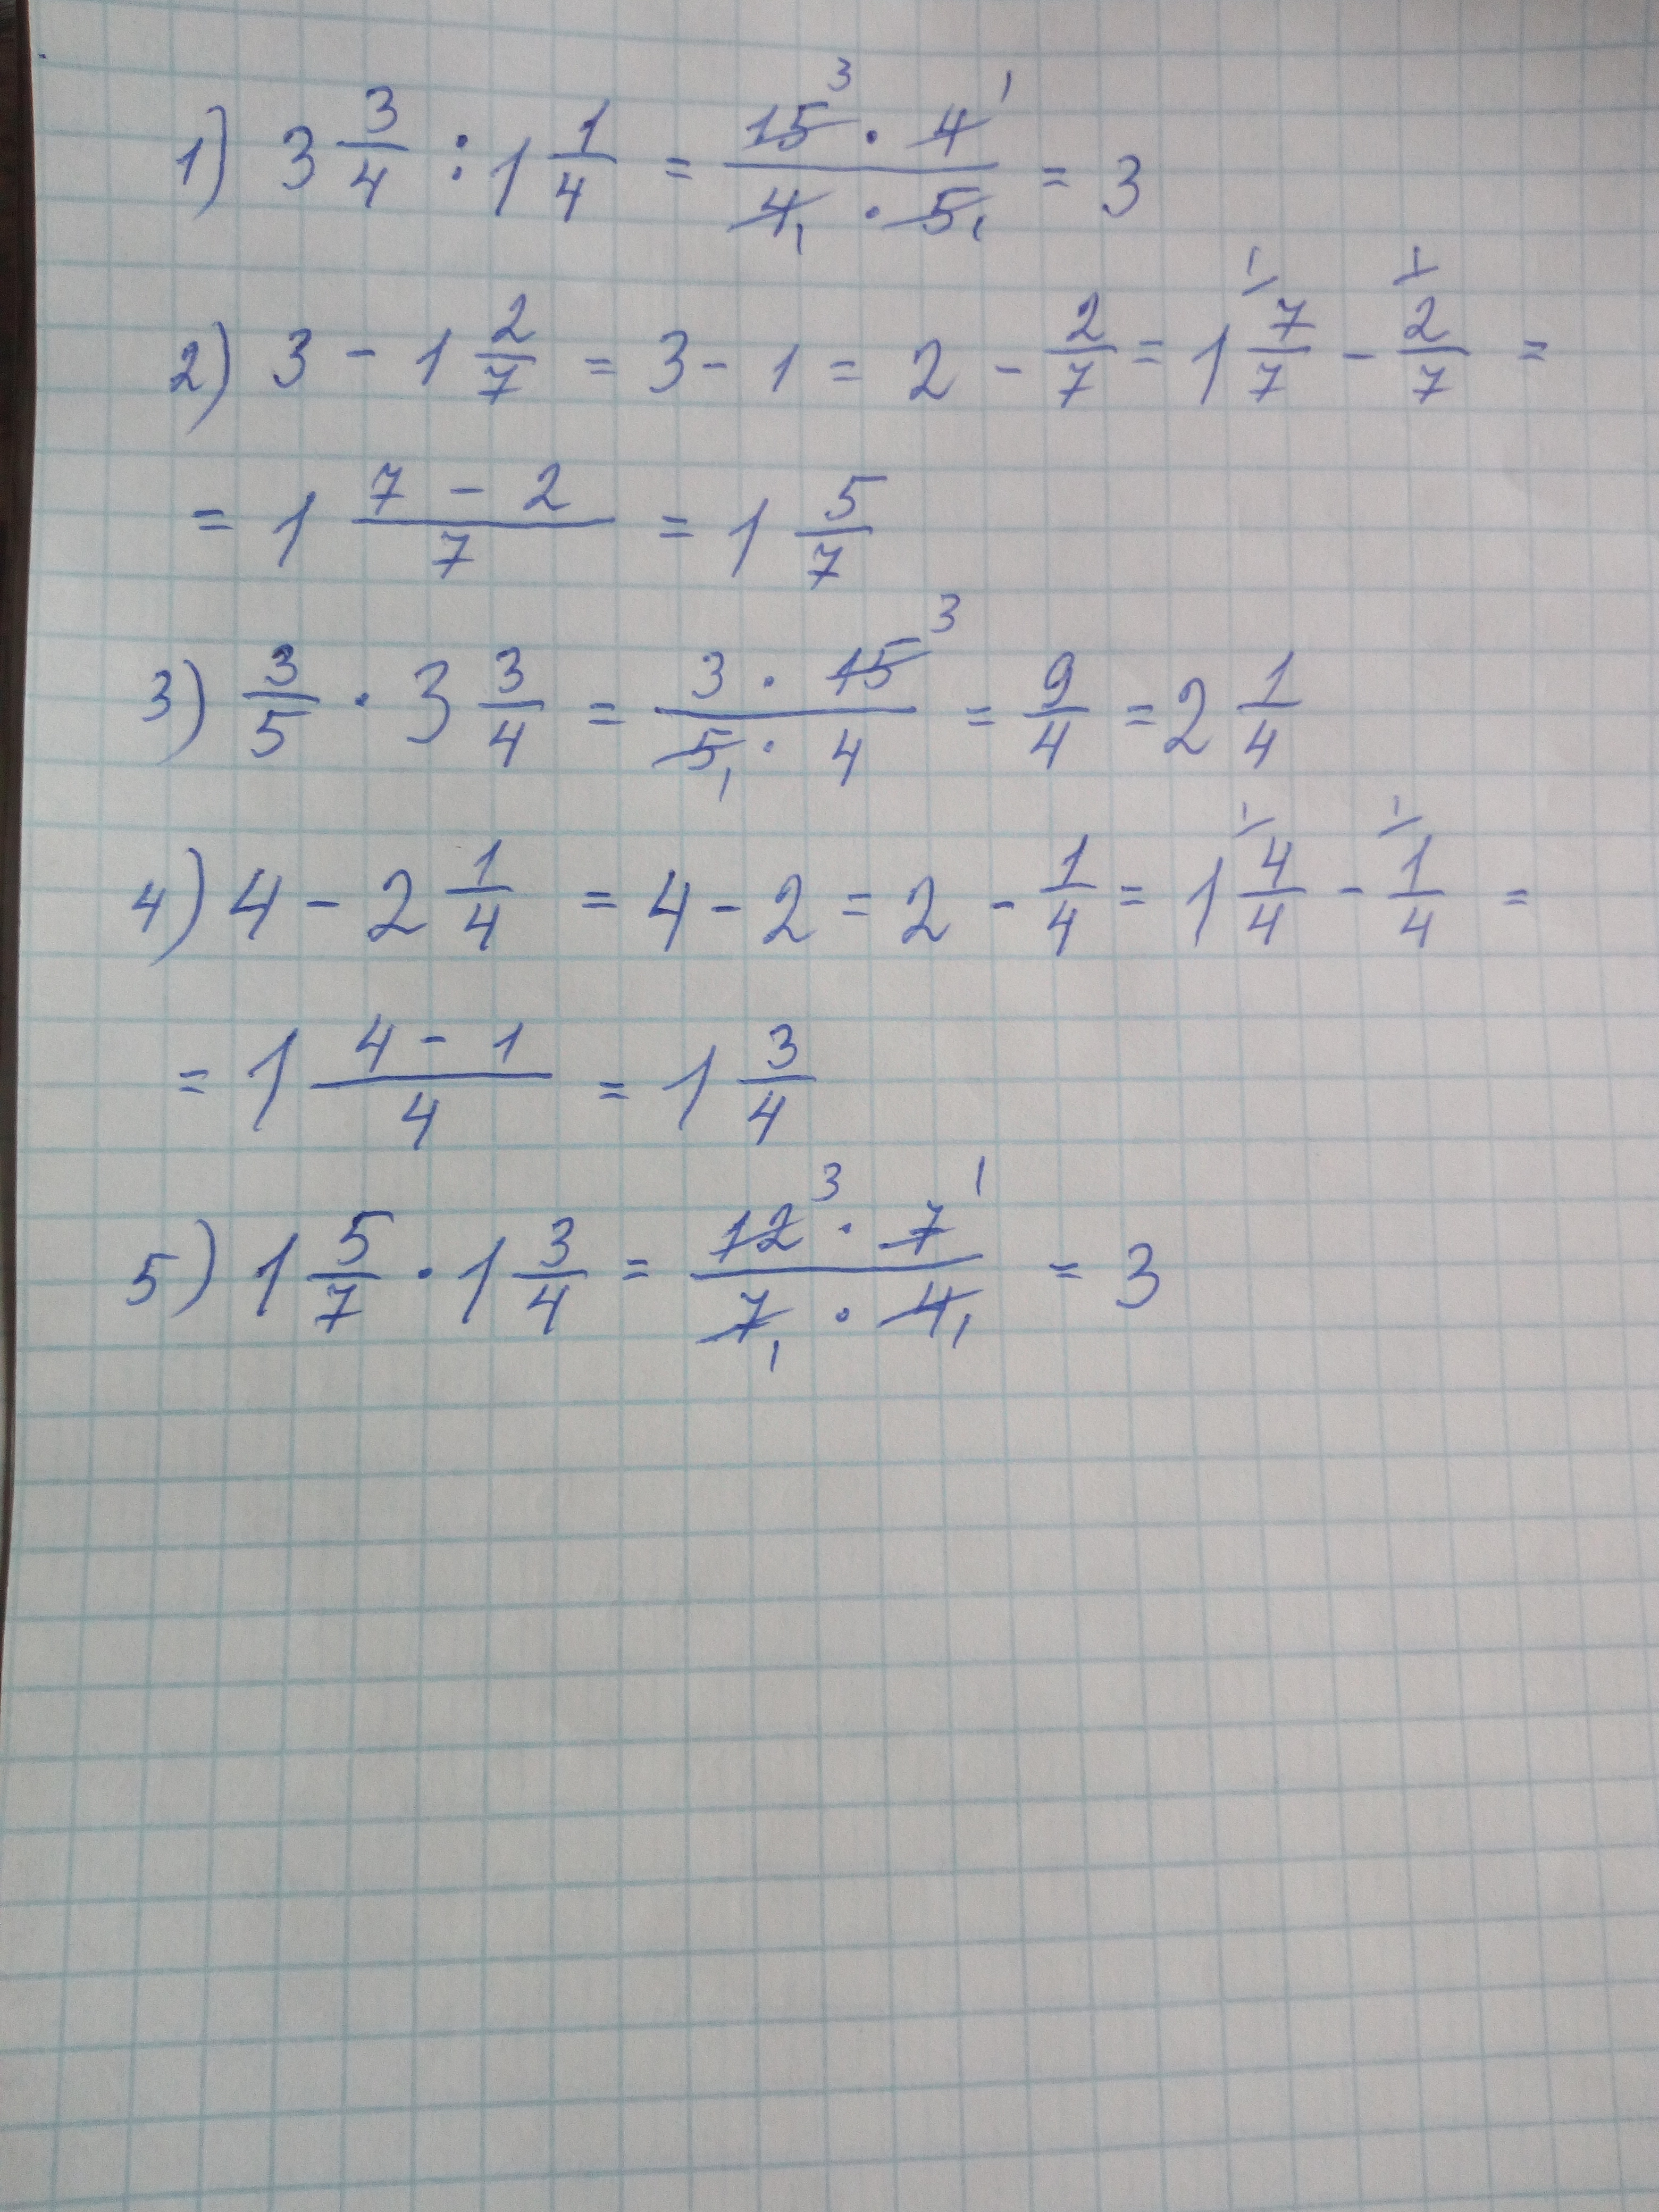 1) 3 3/4 : 1 1/4 = 15³ · 4¹ / 4₁ · 5₁ = 3
2) 3 - 1 2/7 = 3 - 1 = 2 - 2/7 = 1 ¹⁄ 7/7 - ¹⁄ 2/7 =
= 1 7 - 2 / 7 = 1 5/7
3) 3/5 · 3 3/4 = 3 · 15³ / 5₁ · 4 = 9/4 = 2 1/4
4) 4 - 2 1/4 = 4 - 2 = 2 - 1/4 = 1 ¹⁄ 4/4 - ¹⁄ 1/4 =
= 1 4 - 1 / 4 = 1 3/4
5) 1 5/7 · 1 3/4 = 12³ · 7¹ / 7₁ · 4₁ = 3